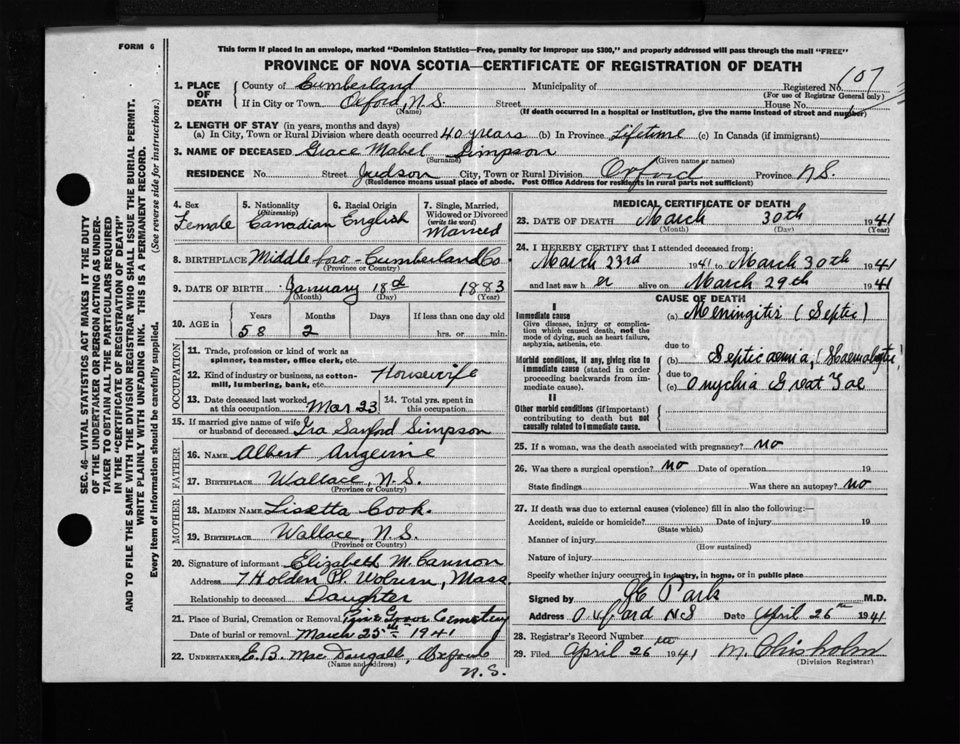 FORM 6
This form if placed in an envelope, marked "Dominion Statistics—Free, penalty for improper use $300," and properly addressed will pass through the mail "FREE"
PROVINCE OF NOVA SCOTIA—CERTIFICATE OF REGISTRATION OF DEATH
SEC. 46—VITAL STATISTICS ACT MAKES IT THE DUTY
OF THE UNDERTAKER OR PERSON ACTING AS UNDER-
TAKER TO OBTAIN ALL THE PARTICULARS REQUIRED
IN THE "CERTIFICATE OF REGISTRATION OF DEATH"
AND TO FILE THE SAME WITH THE DIVISION REGISTRAR WHO SHALL ISSUE THE BURIAL PERMIT.
WRITE PLAINLY WITH UNFADING INK. THIS IS A PERMANENT RECORD.
Every item of Information should be carefully supplied. (See reverse side for instructions.)
1. PLACE OF DEATH
County of Cumberland Municipality of Registered No. 107
(For use of Registrar General only)
If in City or Town Oxford, N.S. Street House No.
(Name) (If death occurred in a hospital or institution, give the name instead of street and number)
2. LENGTH OF STAY (in years, months and days)
(a) In City, Town or Rural Division where death occurred 40 years (b) In Province Lifetime (c) In Canada (if immigrant)
3. NAME OF DECEASED Grace Mabel Simpson
(Surname) (Given name or names)
RESIDENCE No. Street Judson City, Town or Rural Division Oxford Province N.S.
(Residence means usual place of abode. Post Office Address for residents in rural parts not sufficient)
4. Sex Female
5. Nationality (Citizenship) Canadian
6. Racial Origin English
7. Single, Married, Widowed or Divorced (write the word) Married
8. BIRTHPLACE Middleboro - Cumberland Co.
(Province or Country)
9. DATE OF BIRTH January 18th 1883
(Month) (Day) (Year)
10. AGE in Years Months Days If less than one day old
58 2 hrs. or min.
OCCUPATION
11. Trade, profession or kind of work as
spinner, teamster, office clerk, etc.
12. Kind of industry or business, as cotton-
mill, lumbering, bank, etc. Housewife
13. Date deceased last worked
at this occupation Mar 23
14. Total yrs. spent in
this occupation
15. If married give name of wife
or husband of deceased Ira Sanford Simpson
FATHER
16. NAME Albert
17. BIRTHPLACE Wallace, N.S.
(Province or Country)
MOTHER
18. MAIDEN NAME Lisetta Cook.
19. BIRTHPLACE Wallace, N.S.
(Province or Country)
20. Signature of informant Elizabeth M. Cannon
Address 7 Holden Pl. Woburn, Mass.
Relationship to deceased Daughter
21. Place of Burial, Cremation or Removal Pine Grove Cemetery
Date of burial or removal March 25th 1941
22. UNDERTAKER E.B. MacDougall, Oxford
(Name and address) N.S.
MEDICAL CERTIFICATE OF DEATH
23. DATE OF DEATH March 30th 1941
(Month) (Day) (Year)
24. I HEREBY CERTIFY that I attended deceased from:
March 23rd 1941 to March 30th 1941
and last saw her alive on March 29th 1941
CAUSE OF DEATH
I
Immediate cause (a) Meningitis (Septic)
Give disease, injury or complica-
tion which caused death, not the
mode of dying, such as heart failure,
asphyxia, asthenia, etc.
due to
Morbid conditions, if any, giving rise to
immediate cause (stated in order
proceeding backwards from im-
mediate cause).
(b) Septicaemia, (Haemolytic)
due to
(c) Onychia Great Toe
II
Other morbid conditions (if important)
contributing to death but not
causally related to immediate cause.
25. If a woman, was the death associated with pregnancy? No
26. Was there a surgical operation? No Date of operation 19
State findings Was there an autopsy? No
27. If death was due to external causes (violence) fill in also the following:—
Accident, suicide or homicide? Date of injury 19
(State which)
Manner of injury
(How sustained)
Nature of injury
Specify whether injury occurred in industry, in home, or in public place
Signed by Park M.D.
Address Oxford NS Date April 26th 1941
28. Registrar's Record Number
29. Filed April 26th 1941 M. Chisholm
(Division Registrar)